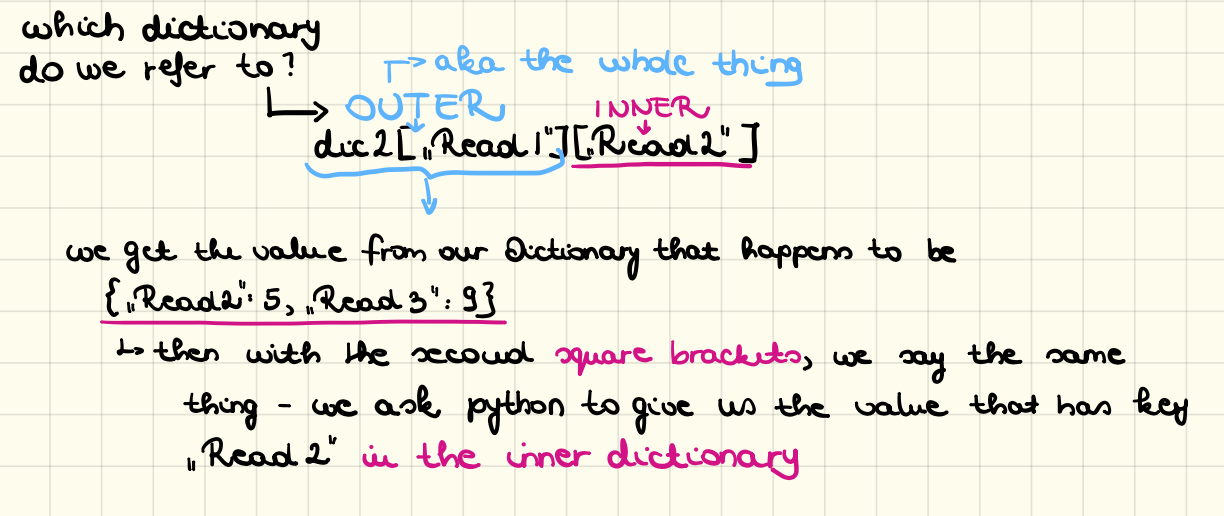 which dictionary
do we refer to?
aka the whole thing
OUTER INNER
dic2[„Read1"][„Read2"]
we get the value from our Dictionary that happens to be
{„Read2": 5, „Read3": 9}
then with the second square brackets, we say the same
thing - we ask python to give us the value that has key
„Read2" in the inner dictionary